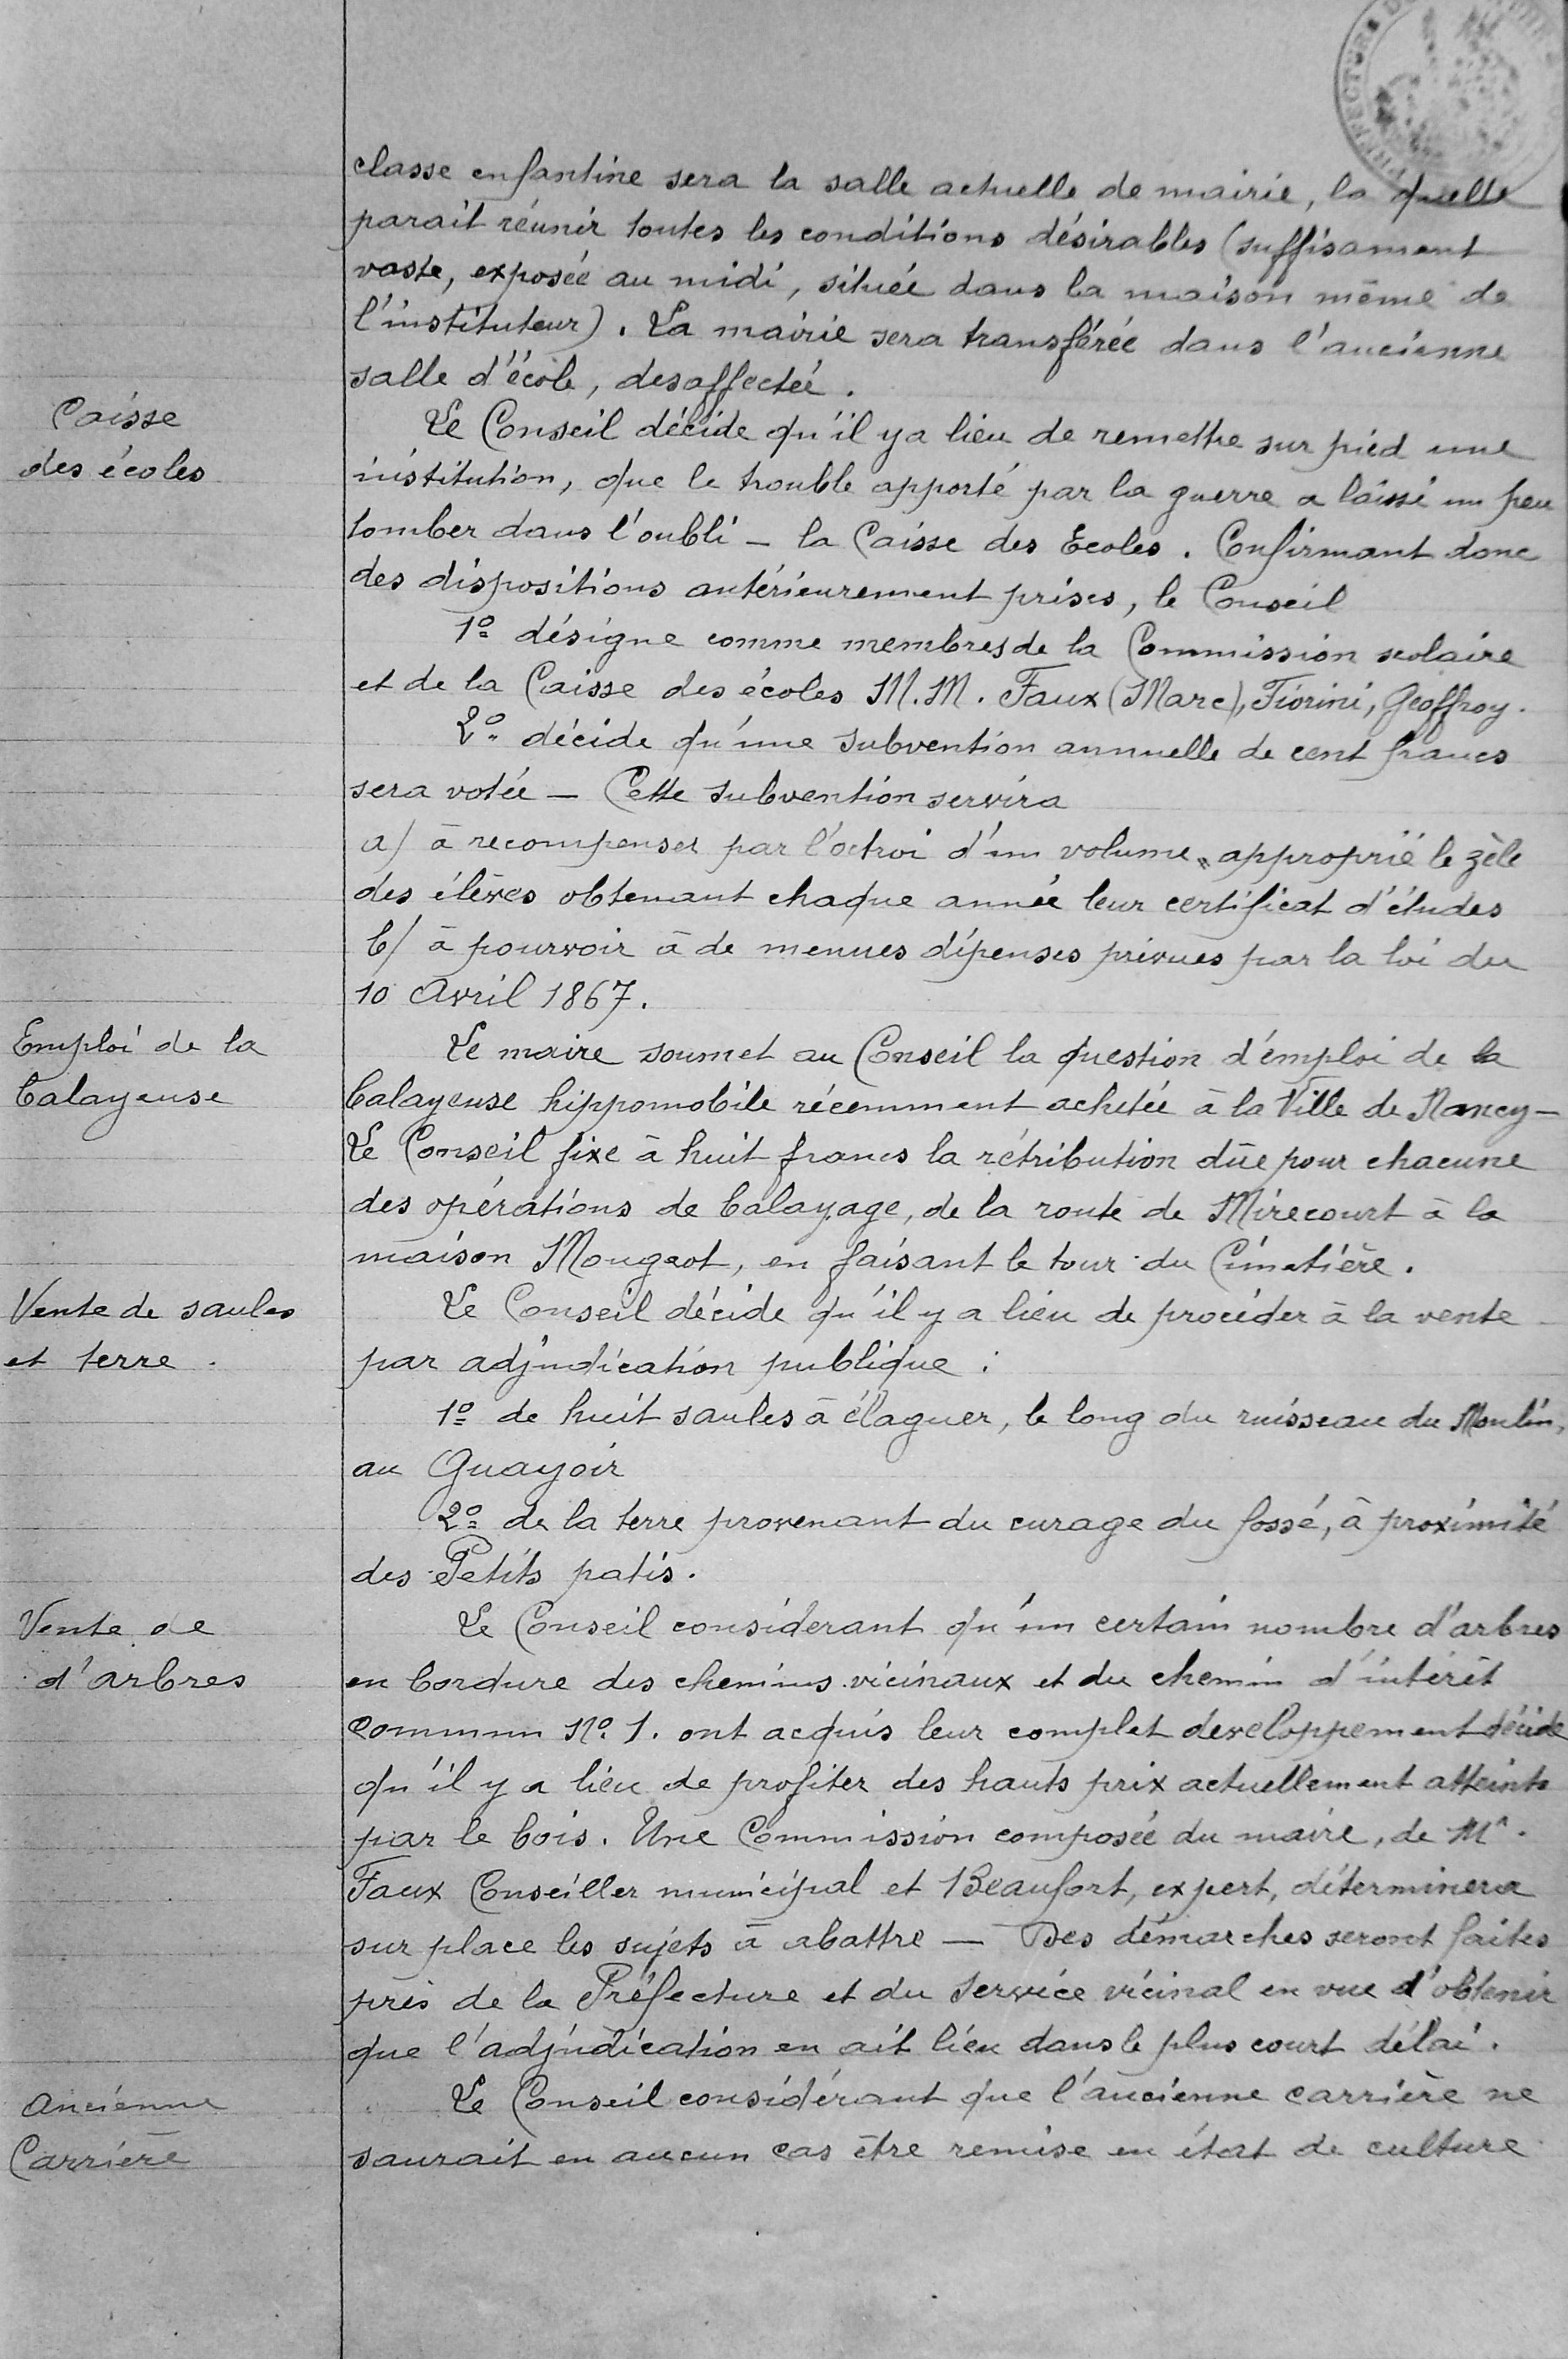 classe enfantine sera la salle actuelle de mairie, la quelle
parait réunir toutes les conditions désirables (suffisament
vaste, exposée au midi, située dans la maison même de
l'instituteur). La mairie sera transférée dans l'ancienne
salle d'école, desaffectée.
Caisse
des écoles
Le Conseil décide qu'il y a lieu de remettre sur pied une
institution, que le trouble apporté par la guerre a laissé un peu
tomber dans l'oubli – la Caisse des Ecoles. Confirmant donc
des dispositions antérieurement prises, le Conseil
1º désigne comme membres de la Commission scolaire
et de la Caisse des écoles M.M. Faux (Marc), Fiorini, Geoffroy.
2º décide qu'une subvention annuelle de cent francs
sera votée – Cette subvention servira
a/ à recompenser par l'octroi d'un volume approprié le zèle
des élèves obtenant chaque année leur certificat d'études
b/ à pourvoir à de menues dépenses prévues par la loi du
10 Avril 1867.
Emploi de la
balayeuse
Le maire soumet au Conseil la question d'emploi de la
balayeuse hippomobile récemment achetée à la Ville de Nancy –
Le Conseil fixe à huit francs la rétribution dûe pour chacune
des opérations de balayage, de la route de Mirecourt à la
maison Mougeot, en faisant le tour du Cimetière.
Vente de saules
et terre.
Le Conseil décide qu'il y a lieu de procéder à la vente
par adjudication publique :
1º de huit saules à élaguer, le long du ruisseau du Moulin,
au Guayoir
2º de la terre provenant du curage du fossé, à proximité
des Petits patis.
Vente de
d'arbres
Le Conseil considerant qu'un certain nombre d'arbres
en bordure des chemins vicinaux et du chemin d'intérêt
commun Nº 1. ont acquis leur complet developpement décide
qu'il y a lieu de profiter des hauts prix actuellement atteints
par le bois. Une Commission composée du maire, de Mr.
Faux Conseiller municipal et Beaufort, expert, déterminera
sur place les sujets à abattre – Des démarches seront faites
près de la Préfecture et du Service vicinal en vue d'obtenir
que l'adjudication en ait lieu dans le plus court délai.
Ancienne
Carrière
Le Conseil considérant que l'ancienne carrière ne
saurait en aucun cas être remise en état de culture